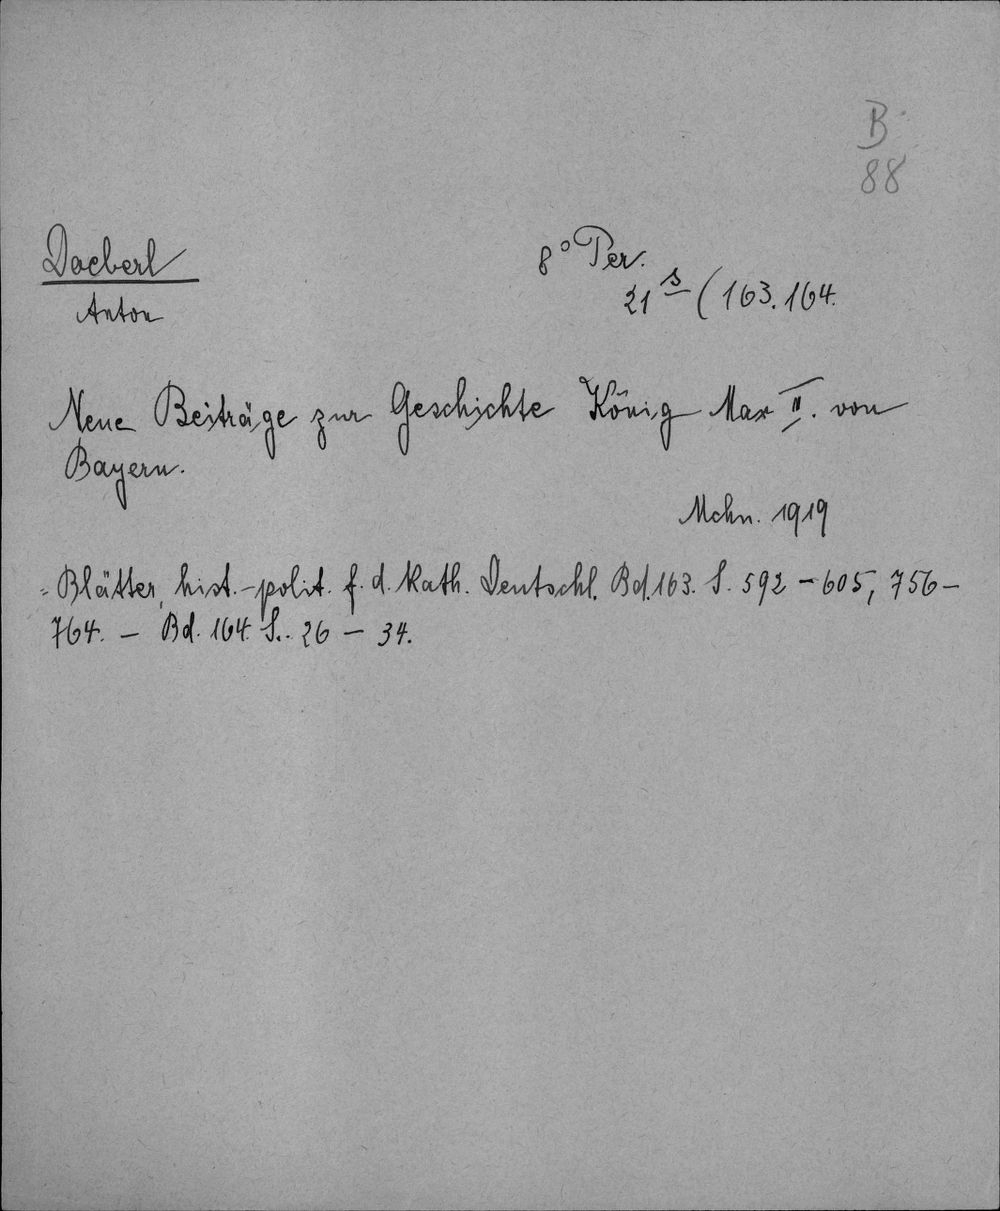 B.
88
Doeberl
8° Per.
21 s (163.164.
Anton
Neue Beiträge zur Geschichte König Max II. von
Bayern.
Mchn. 1919
= Blätter, hist.-polit. f. d. kath. Deutschl. Bd. 163. S. 592 – 605, 756 –
764. – Bd. 164. S. 26 – 34.